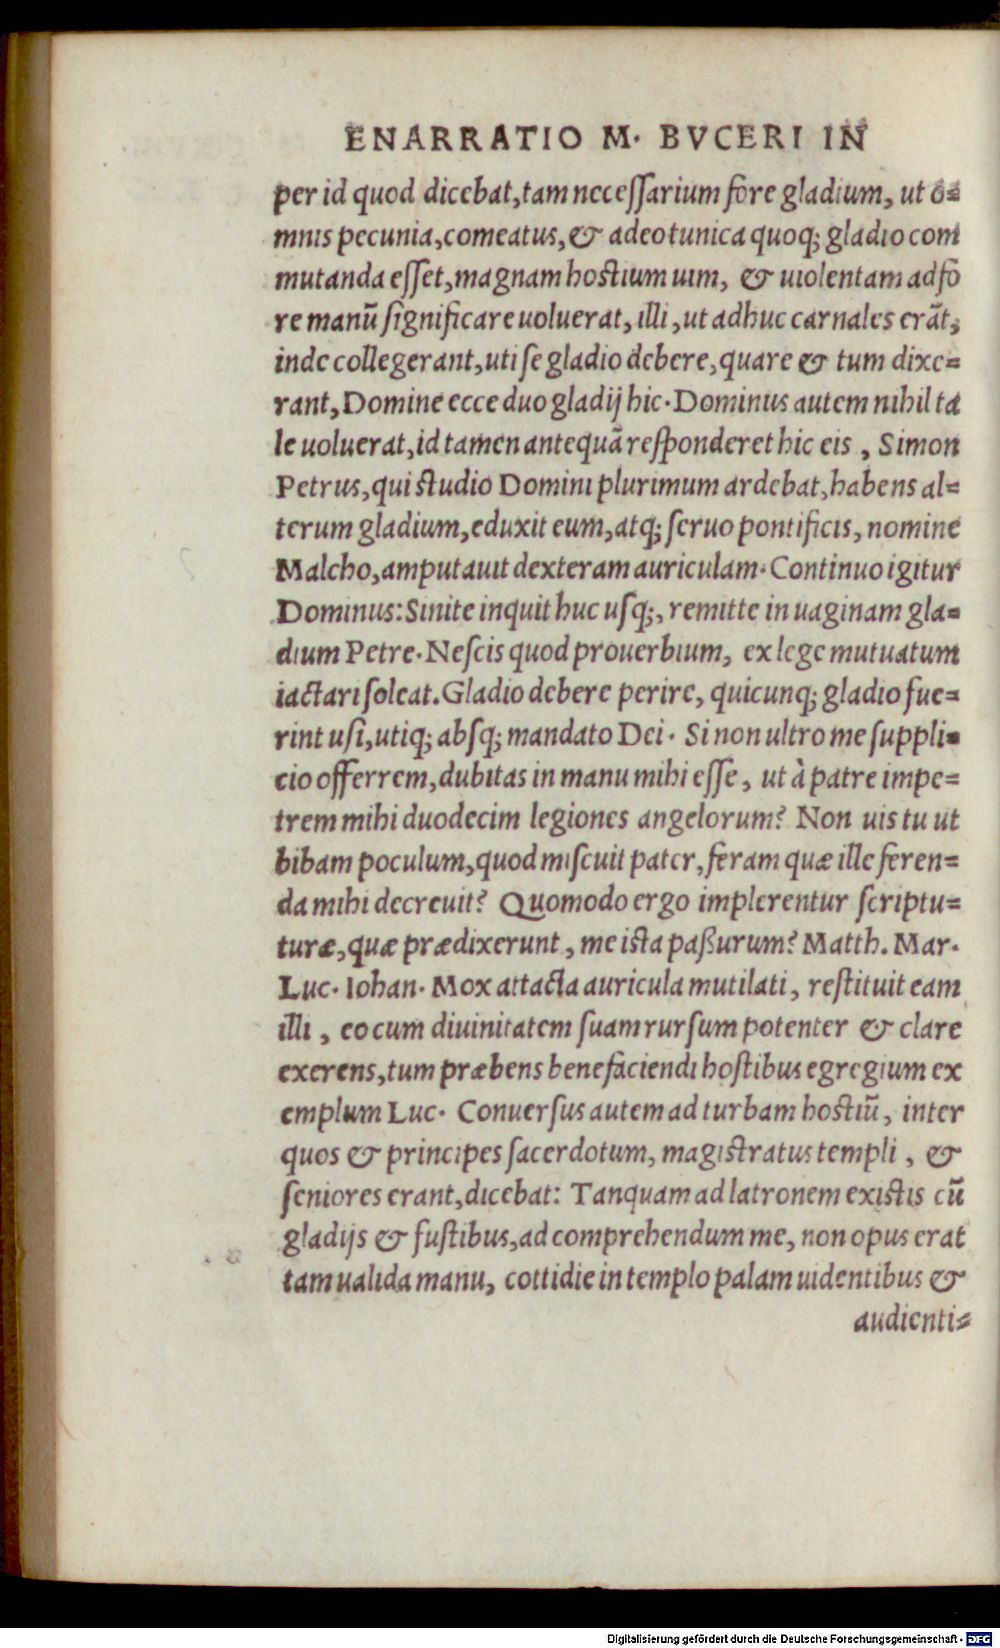 ENARRATIO M. BVCERI IN
per id quod dicebat, tam necessarium fore gladium, ut o=
mnis pecunia, comeatus, & adeo tunica quoq; gladio com
mutanda esset, magnam hostium uim, & uiolentam adfo
re manū significare uoluerat, illi, ut adhuc carnales erāt,
inde collegerant, uti se gladio debere, quare & tum dixe=
rant, Domine ecce duo gladij hic. Dominus autem nihil ta
le uoluerat, id tamen antequā responderet hic eis, Simon
Petrus, qui studio Domini plurimum ardebat, habens al=
terum gladium, eduxit eum, atq; seruo pontificis, nomine
Malcho, amputauit dexteram auriculam. Continuo igitur
Dominus: Sinite inquit huc usq;, remitte in uaginam gla=
dium Petre. Nescis quod prouerbium, ex lege mutuatum
iactari soleat. Gladio debere perire, quicunq; gladio fue=
rint usi, utiq; absq; mandato Dei. Si non ultro me suppli=
cio offerrem, dubitas in manu mihi esse, ut à patre impe=
trem mihi duodecim legiones angelorum? Non uis tu ut
bibam poculum, quod miscuit pater, feram quæ ille feren=
da mihi decreuit? Quomodo ergo implerentur scriptu=
turæ, quæ prædixerunt, me ista paßurum? Matth. Mar.
Luc. Iohan. Mox attacta auricula mutilati, restituit eam
illi, eo cum diuinitatem suam rursum potenter & clare
exerens, tum præbens benefaciendi hostibus egregium ex
emplum Luc. Conuersus autem ad turbam hostiū, inter
quos & principes sacerdotum, magistratus templi, &
seniores erant, dicebat: Tanquam ad latronem existis cū
gladijs & fustibus, ad comprehendum me, non opus erat
tam ualida manu, cottidie in templo palam uidentibus &
audienti=
Digitalisierung gefördert durch die Deutsche Forschungsgemeinschaft - DFG